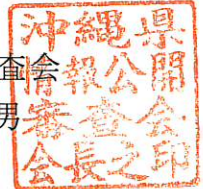 査会
男
沖縄県
情報公開
審査会
会長之印